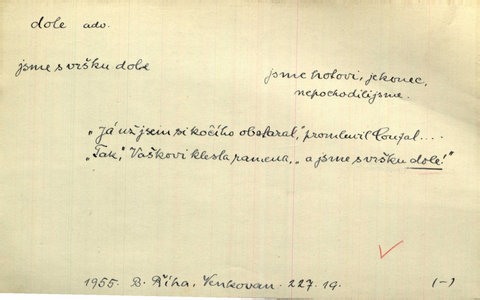 dole adv.
jsme s vršku dole
jsme hotovi, je konec,
nepochodili jsme.
„Já už jsem si kočího obstaral,“ promluvil Coufal....
„Tak,“ Vaškovi klesla ramena, „a jsme s vršku dole!“
1955. B. Říha, Venkovan. 227. 19. (-)